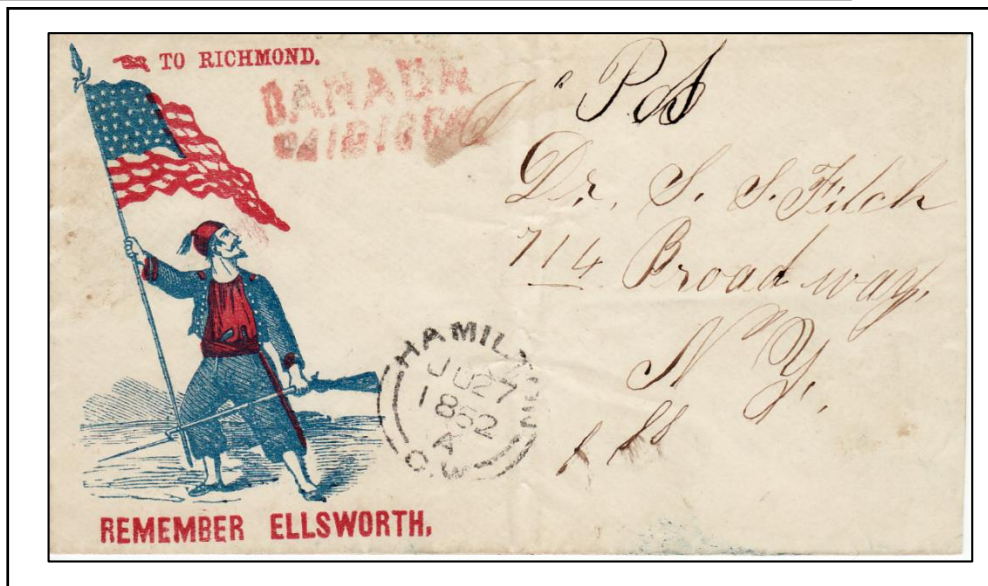 TO RICHMOND.
CANADA
Pd
Dr. S. S. Fitch
714 Broadway.
N Y.
HAMILTON
JU 27
1862
A
C.W
REMEMBER ELLSWORTH,